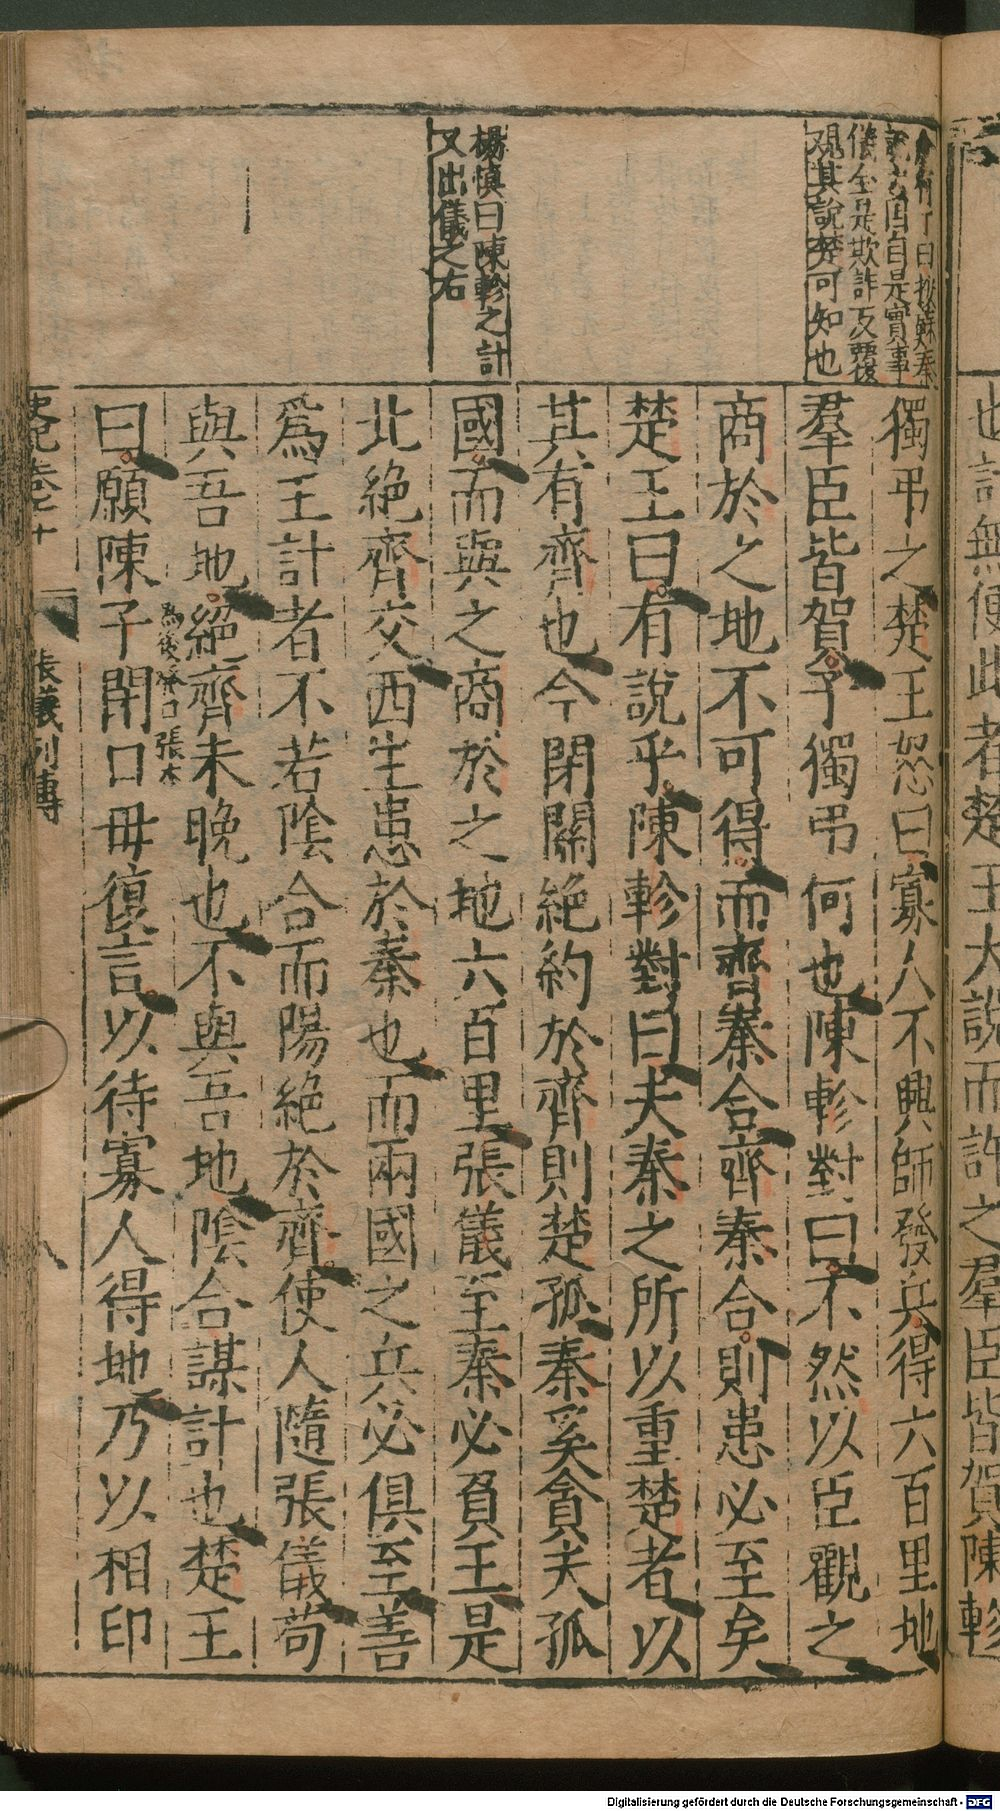 也計無便此者楚王大說而許之羣臣皆賀陳軫
獨弔之楚王怒曰寡人不興師發兵得六百里地
羣臣皆賀子獨弔何也陳軫對曰不然以臣觀之
商於之地不可得而齊秦合齊秦合則患必至矣
楚王曰有說乎陳軫對曰夫秦之所以重楚者以
其有齊也今閉關絕約於齊則楚孤秦奚貪夫孤
國而與之商於之地六百里張儀至秦必負王是
北絕齊交西生患於秦也而兩國之兵必俱至善
爲王計者不若陰合而陽絕於齊使人隨張儀苟
與吾地絕齊未晚也不與吾地陰合謀計也楚王
爲後 張本
曰願陳子閉口毋復言以待寡人得地乃以相印
史記卷七十 張儀列傳 八
曰 蘇秦
自是實事
儀全是欺詐反覆
觀其說楚可知也
楊慎曰陳軫之計
又出儀之右
Digitalisierung gefördert durch die Deutsche Forschungsgemeinschaft - DFG